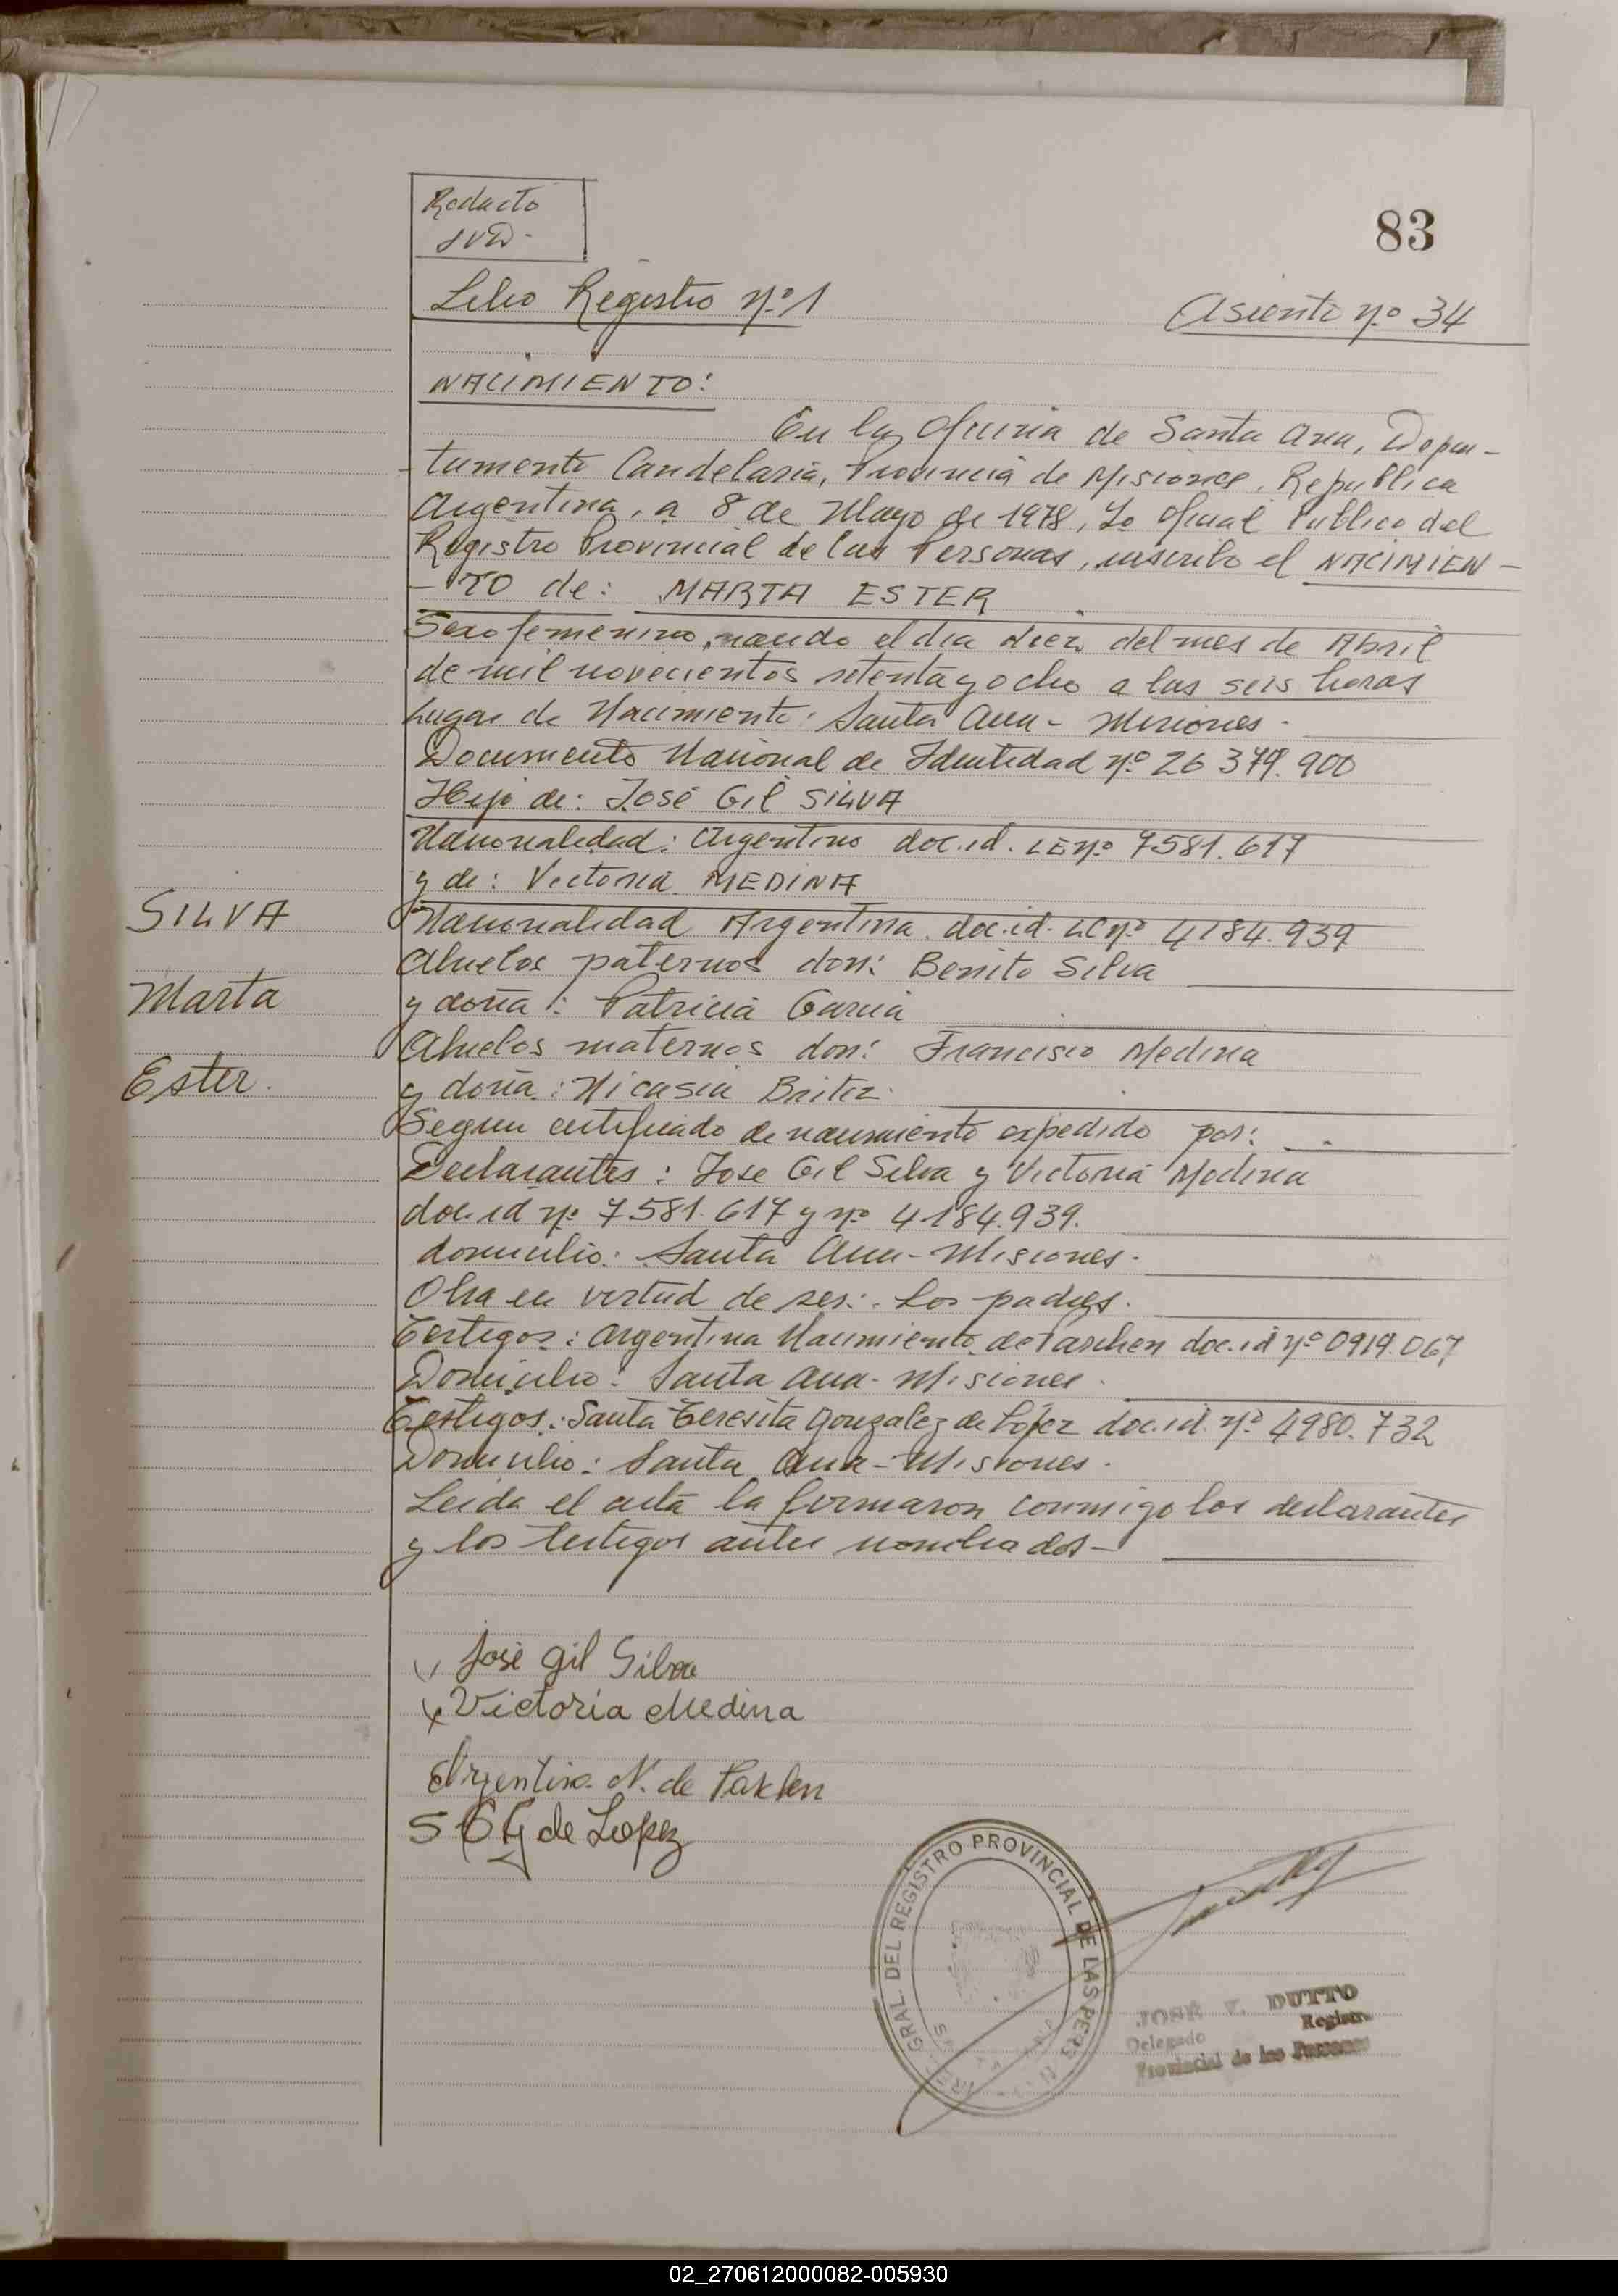 Redactó
JVD.
83
Libro Registro nº 1
Asiento nº 34
NACIMIENTO:
En la Oficina de Santa Ana, Depar-
-tamento Candelaria, Provincia de Misiones, Republica
Argentina, a 8 de Mayo de 1978, Yo Oficial Publico del
Registro Provincial de las Personas, inscribo el NACIMIEN-
-TO de: MARTA ESTER
Sexo femenino, nacido el dia diez del mes de Abril
de mil novecientos setenta y ocho a las seis horas
Lugar de Nacimiento: Santa Ana - Misiones.
Documento Nacional de Identidad nº 26 379. 900
Hijo de: José Gil SILVA
Nacionalidad: Argentino doc. id. LE nº 7581.617
y de: Victoria MEDINA
SILVA
Nacionalidad Argentina. doc. id. LC nº 4184.939
Abuelos paternos don: Benito Silva
Marta
y doña: Patricia Garcia
Abuelos maternos don: Francisco Medina
Ester.
y doña: Nicasia Britez.
Segun certificado de nacimiento expedido por: —.
Declarantes: Jose Gil Silva y Victoria Medina
doc. id nº 7581.617 y nº 4184.939.
domicilio: Santa Ana - Misiones.
Obra en virtud de ser: Los padres.
Testigos: Argentina Nacimiento de doc. id nº 0919.067
Domicilio: Santa Ana - Misiones.
Testigos: Santa Teresita Gonzalez de López doc. id. nº 4980.732
Domicilio: Santa Ana - Misiones.
Leida el acta la firmaron conmigo los declarantes
y los testigos antes nombrados -
José Gil Silva
Victoria Medina
Argentina N. de
S T G de Lopez
GRAL. DEL REGISTRO PROVINCIAL DE LAS PERS
JOSÉ V. DUTTO
Delegado Registro
Provincial de las Personas
02_270612000082-005930